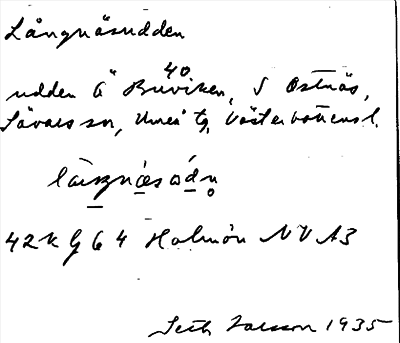 Långnäsudden
40
udden Ö Buviken, S Ostnäs,
Sävars sn, Umeå tg, Västerbottens l.
42k G 6 4 Holmön NV A3
Seth Larsson 1935